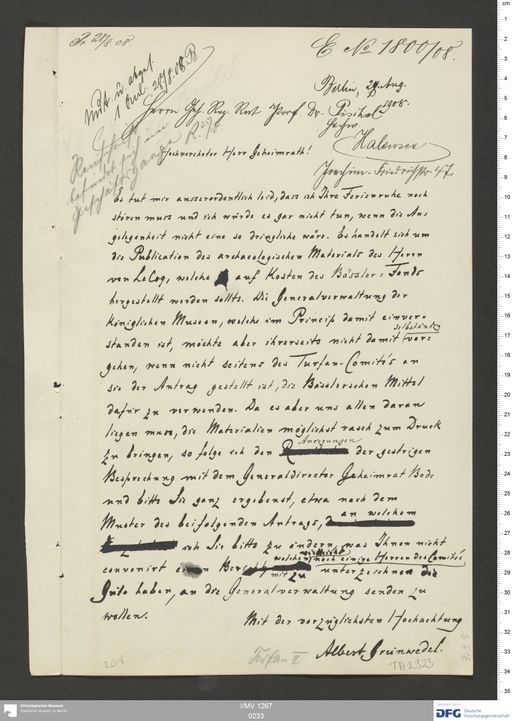 Pr 28/8 08.
E No 1800/08.
Berlin, 24 Aug.
1908.
Herrn Geh. Reg. Rat Prof. Dr. Pischel
Hochw.
Halensee
Joachim-Friedrichstr 47.
Hochverehrter Herr Geheimrath!
Es tut mir ausserordentlich leid, dass ich Ihre Ferienruhe noch
stören muss und ich würde es gar nicht tun, wenn die An-
gelegenheit nicht eine so dringliche wäre. Es handelt sich um
die Publication des archaeologischen Materials des Herrn
von LeCoq, welche auf Kosten des Bässler-Fonds
hergestellt werden sollte. Die Generalverwaltung der
Königlichen Museen, welche im Princip damit einver-
standen ist, möchte aber ihrerseits nicht damit selbständig vor-
gehen, wenn nicht seitens des Turfan-Comités an
sie der Antrag gestellt ist, die Bässlerschen Mittel
dafür zu verwenden. Da es aber uns allen daran
liegen muss, die Materialien möglichst rasch zum Druck
zu bringen, so folge ich den Anregungen der gestrigen
Besprechung mit dem Generaldirector Geheimrat Bode
und bitte Sie ganz ergebenst, etwa nach dem
Muster des beifolgenden Antrags, an welchem
ich Sie bitte zu ändern, was Ihnen nicht
convenirt welchen vielleicht noch einige Herren des Comités
mit zu unterzeichnen die
Güte haben, an die Generalverwaltung senden zu
wollen.
Mit der vorzüglichsten Hochachtung
Albert Grünwedel.
208
Turfan II
TA 2323
Ethnologisches Museum
Staatliche Museen zu Berlin
I/MV 1267
0233
DFG Deutsche
Forschungsgemeinschaft